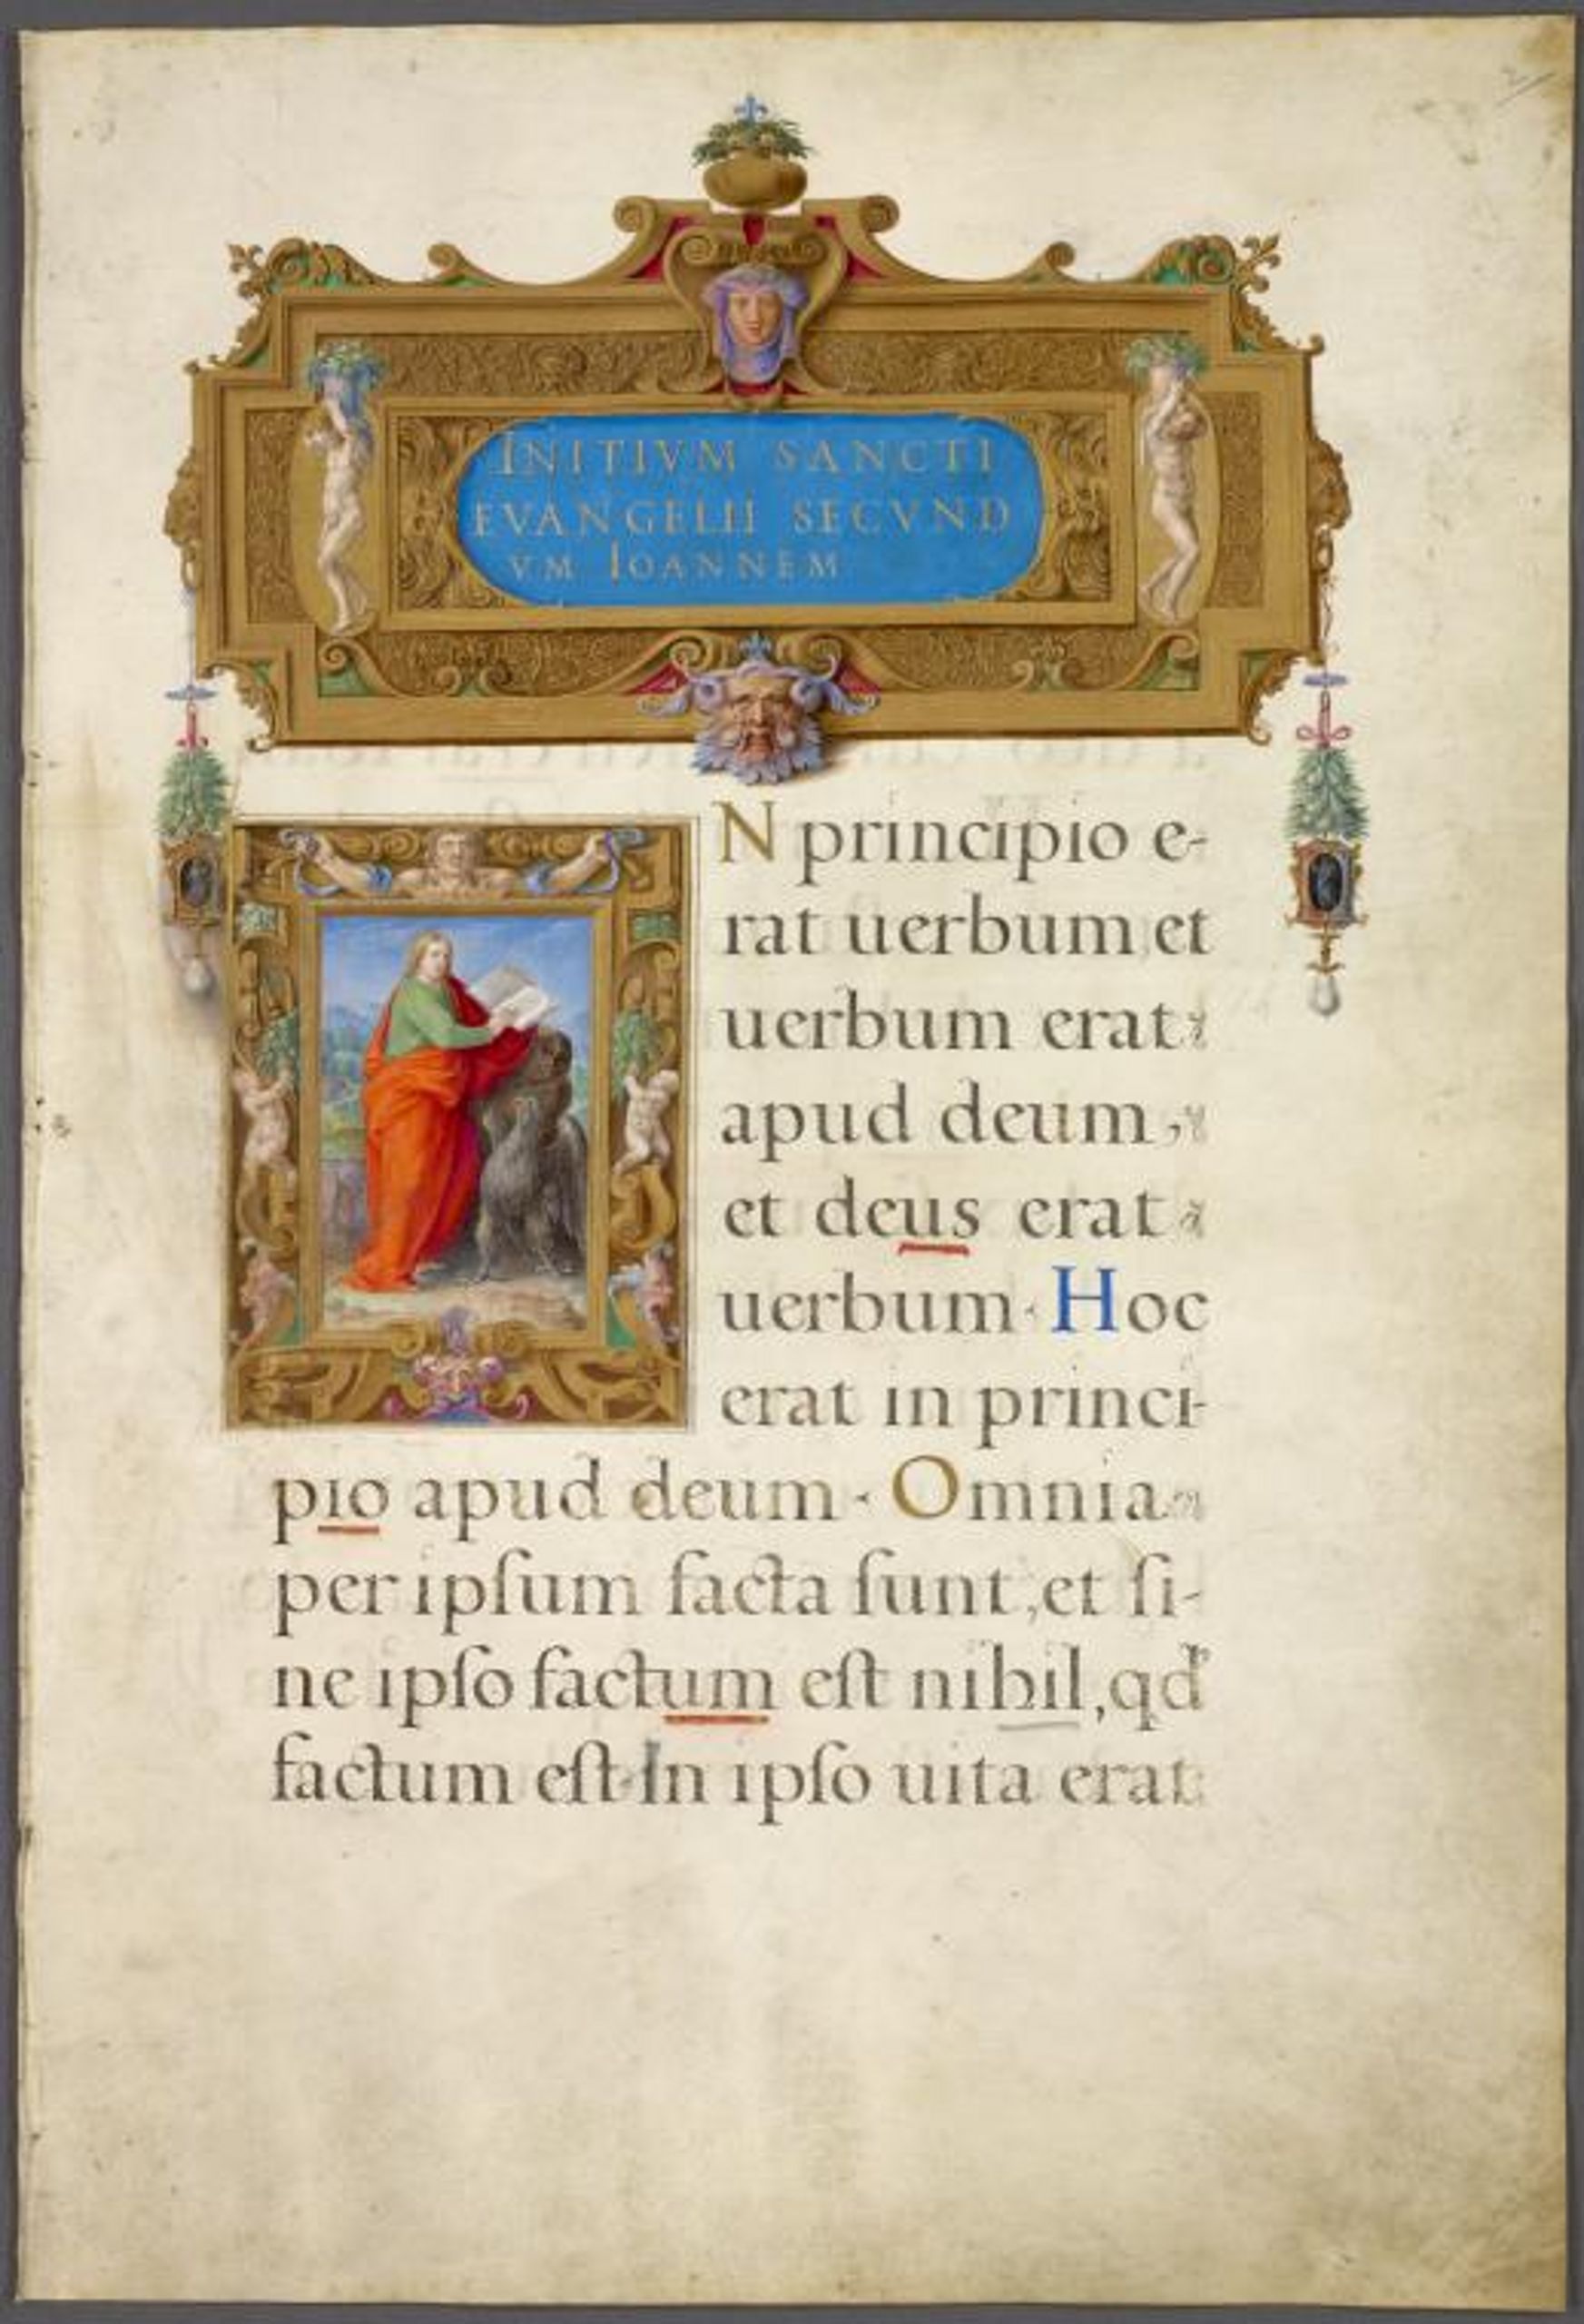 INITIVM SANCTI
EVANGELII SECVND
VM IOANNEM
N principio e-
rat uerbum et
uerbum erat
apud deum,
et deus erat
uerbum· Hoc
erat in princi-
pio apud deum· Omnia
per ipſum facta ſunt, et ſi-
ne ipſo factum eſt nihil, qd'
factum eſt· In ipſo uita erat